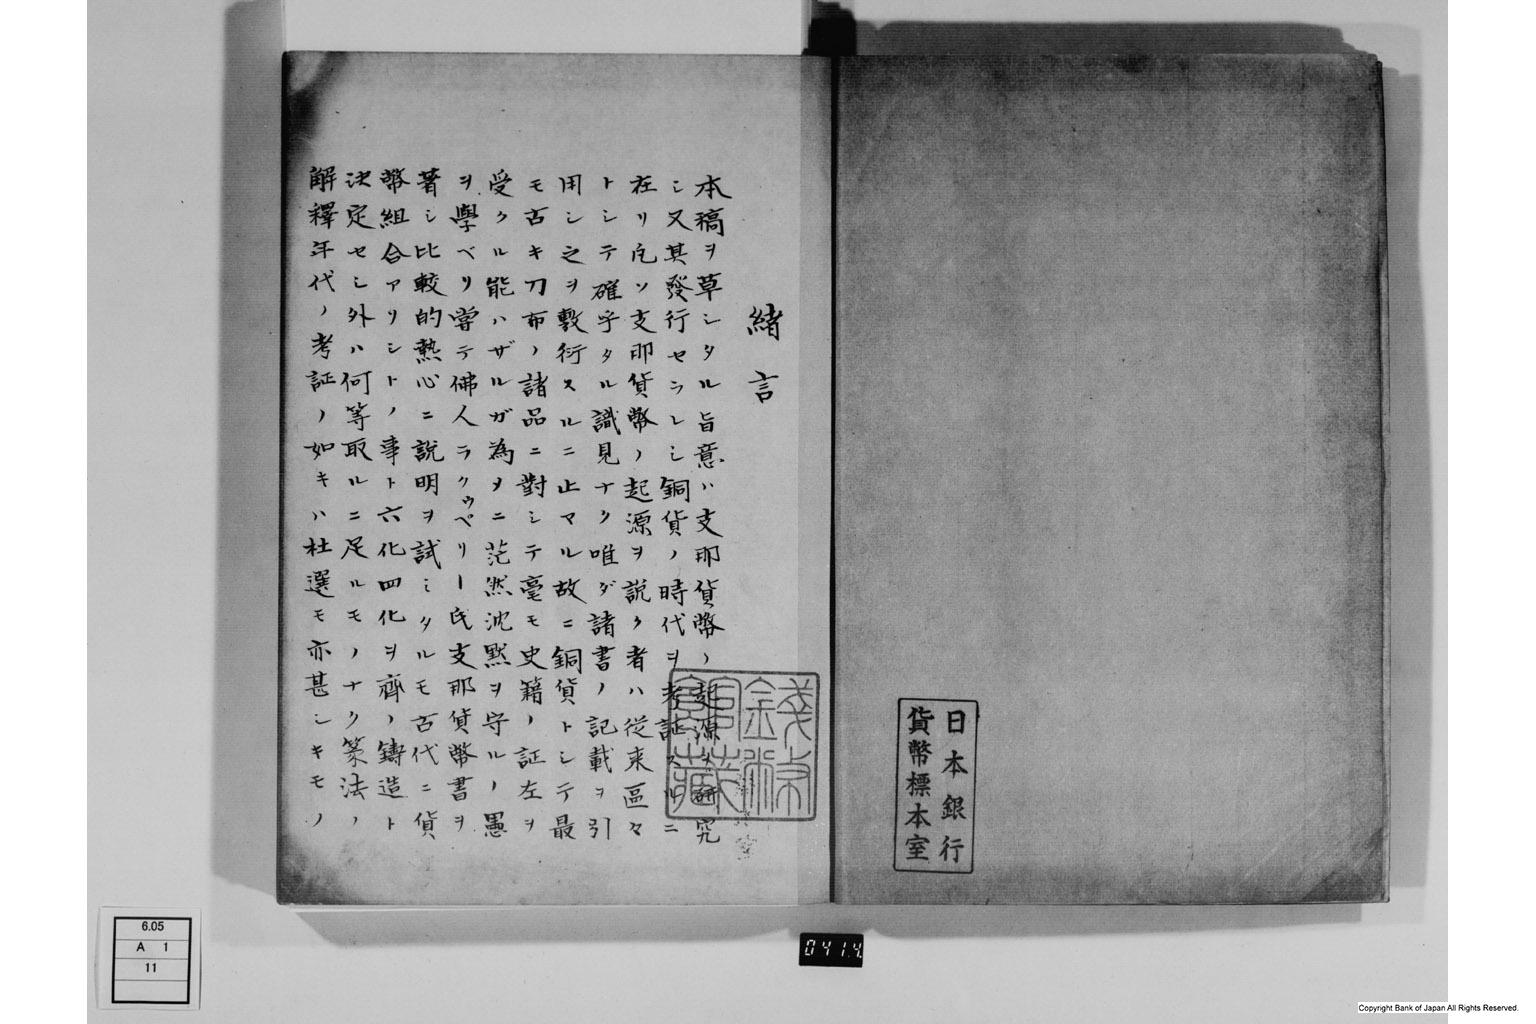 日本銀行
貨幣標本室
緒言
本稿ヲ草シタル旨意ハ支那貨幣ノ起源ヲ研究
シ又其發行セラレシ銅貨ノ時代ヲ考証スルニ
在リ凡ソ支那貨幣ノ起源ヲ説ク者ハ従来區々
トシテ確乎タル識見ナク唯ダ諸書ノ記載ヲ引
用シ之ヲ敷衍スルニ止マル故ニ銅貨トシテ最
モ古キ刀布ノ諸品ニ對シテ毫モ史籍ノ証左ヲ
受クル能ハザルガ為メニ茫然沈黙ヲ守ルノ愚
ヲ學ベリ嘗テ佛人ラクウペリー氏支那貨幣書ヲ
著シ比較的熱心ニ説明ヲ試ミタルモ古代ニ貨
幣組合アリシトノ事ト六化四化ヲ齊ノ鋳造ト
决定セシ外ハ何等取ルニ足ルモノナク篆法ノ
解釋年代ノ考証ノ如キハ杜選モ亦甚シキモノ
6.05
A 1
11
041.4
Copyright Bank of Japan All Rights Reserved.